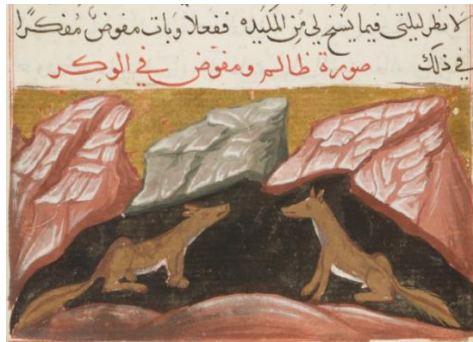 لانظر ليلتي فيما يسنح لي من المكيده ففعلا وبات مفوض مفكرا
في ذلك صورة ظالم ومفوض في الوكر